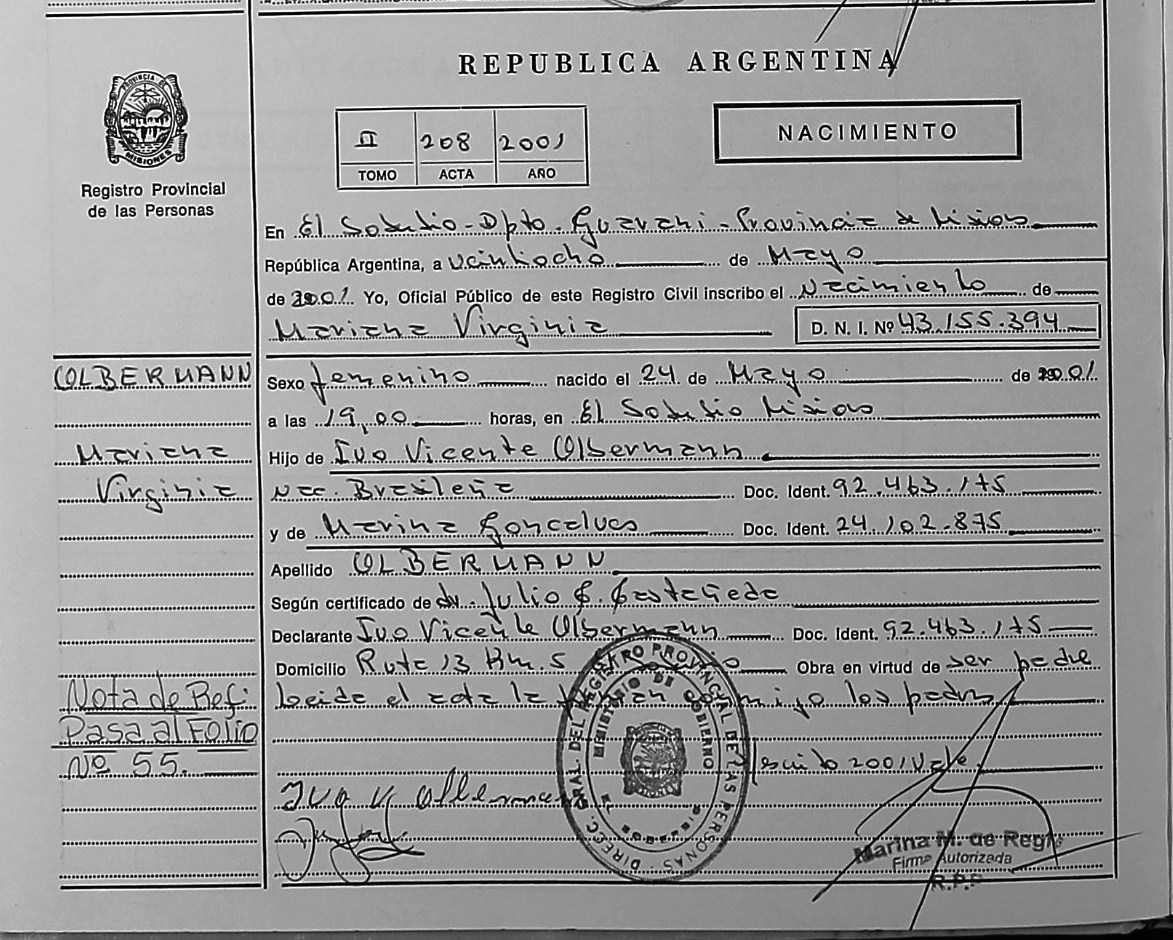 REPUBLICA ARGENTINA
PROVINCIA DE MISIONES
Registro Provincial
de las Personas
II 208 2001
TOMO ACTA AÑO
NACIMIENTO
En El Soberbio - Dpto. Guarani - Provincia de Misiones
República Argentina, a veintiocho de Mayo
de 2001 Yo, Oficial Público de este Registro Civil inscribo el Nacimiento de
Mariana Virginia D. N. I. Nº 43.155.394
OLBERMANN
Mariana
Virginia
Sexo femenino nacido el 24 de Mayo de 2001
a las 19,00 horas, en El Soberbio Misiones
Hijo de Ivo Vicente Olbermann
Nac. Brasileña Doc. Ident. 92.463.175
y de Marina Goncalves Doc. Ident. 24.102.875
Apellido OLBERMANN
Según certificado de dr. Julio Castañeda
Declarante Ivo Vicente Olbermann Doc. Ident. 92.463.175
Domicilio Ruta 13 Km. 5 Obra en virtud de ser padre
Leida el acta la firman conmigo los padres
2001 Vale
Nota de Ref.
Pasa al Folio
Nº 55.
Ivo V Olbermann
DIREC. GRAL. DEL REGISTRO PROVINCIAL DE LAS PERSONAS
MINISTERIO DE GOBIERNO
EL SOBERBIO
Marina M. de Regis
Firma Autorizada
R.P.P.